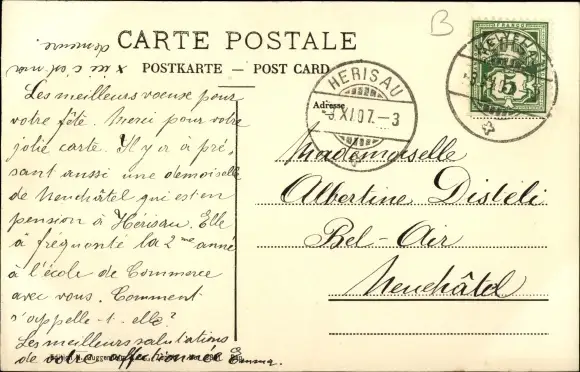 B
CARTE POSTALE
POSTKARTE — POST CARD
FRANCO
5
HERISAU
XI.07.–3
Adresse
x ici c'est moi
demeure.
Les meilleurs voeuse pour
votre fête. Merci pour votre
jolie carte. Il y a à pré,
sant aussi une demoiselle
de Neuchâtel qui est en
pension à Hérisau. Elle
a fréquenté la 2me anné
à l'école de Commerce
avec vous. Comment
s'appelle-t-elle?
Les meilleurs salutations
de votre affectionnée Emma.
Mademoiselle
Albertine Disteli
Bel-Air
Neuchâtel